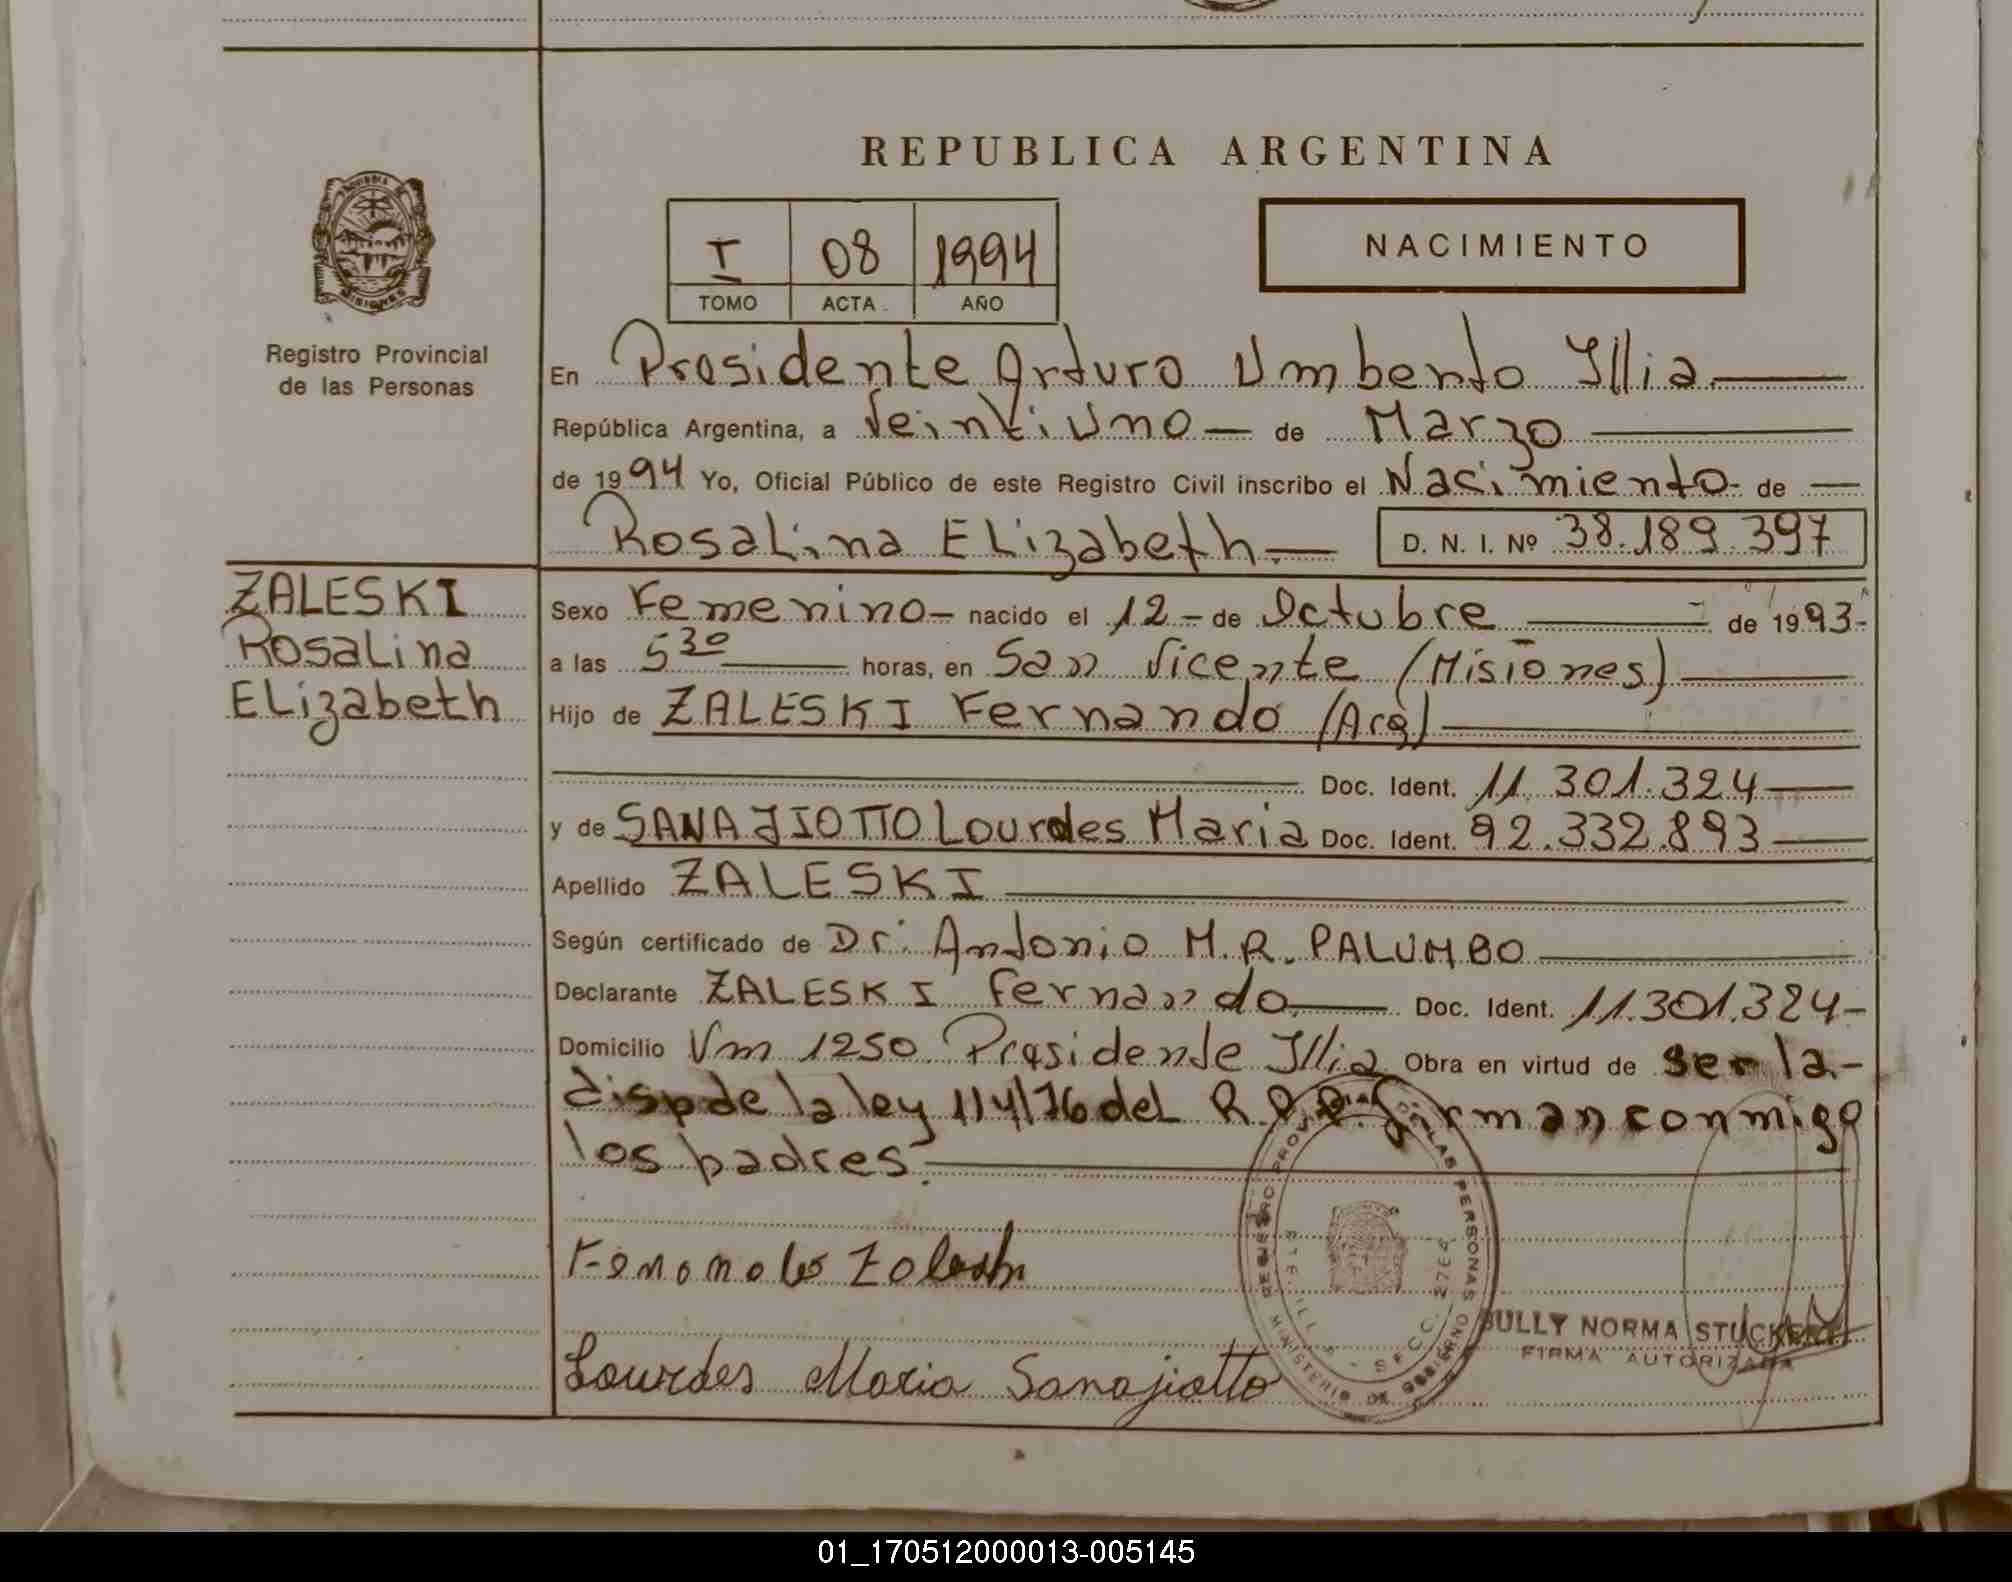 REPUBLICA ARGENTINA
I 08 1994
TOMO ACTA AÑO
NACIMIENTO
MISIONES
Registro Provincial
de las Personas
En Presidente Arturo Umberto Illia
República Argentina, a Veintiuno de Marzo
de 1994 Yo, Oficial Público de este Registro Civil inscribo el Nacimiento de
Rosalina Elizabeth D. N. I. Nº 38.189.397
ZALESKI
Rosalina
Elizabeth
Sexo Femenino nacido el 12 de Octubre de 1993
a las 5 30 horas, en San Vicente (Misiones)
Hijo de ZALESKI Fernando (Arg)
Doc. Ident. 11.301.324
y de SANAJIOTTO Lourdes Maria Doc. Ident. 92.332.893
Apellido ZALESKI
Según certificado de Dr. Antonio M.R. PALUMBO
Declarante ZALESKI Fernando Doc. Ident. 11.301.324
Domicilio Km 1250 Presidente Illia Obra en virtud de ser la
disp de la ley 114/76 del R.P.P. firman conmigo
los padres.
REGISTRO PROVINCIAL DE LAS PERSONAS
MINISTERIO DE GOBIERNO
Lourdes Maria Sanajiotto
NORMA STUCKERT
FIRMA AUTORIZADA
01_170512000013-005145